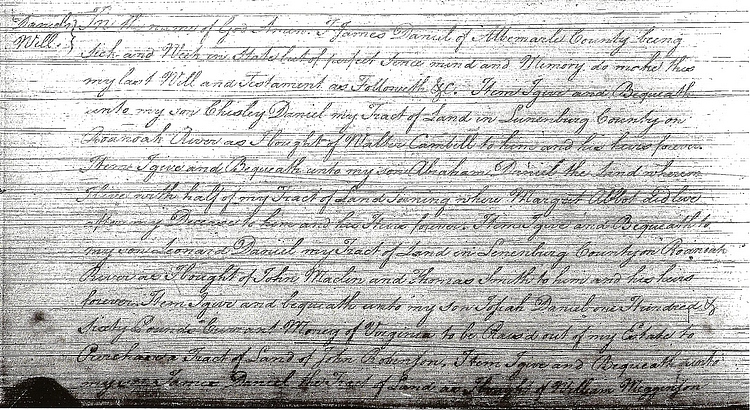 Daniels
Will.
In the name of God Amen. I James Daniel of Albemarle County being
Sick and Weak in State but of perfect Sence mind and Memory do make this
my last Will and Testament as Followeth &c. Item I give and Bequeath
unto my son Chesley Daniel my Tract of Land in Lunenburg County on
Roanoak River as I bought of Walter Cambell to him and his heirs forever.
Item I give and Bequeath unto my son Abraham Daniel the Land whereon
I live with half of my Tract of Land Joining where Margret Abbot did live
after my Decease to him and his Heirs forever. Item I give and Bequeath to
my son Leonard Daniel my Tract of Land in Lunenburg County on Roanoak
River as I bought of John Maclin and Thomas Smith to him and his heirs
forever. Item I give and bequeath unto my son Josiah Daniel one Hundred &
sixty Pounds Currant Money of Virginia to be Raisd out of my Estate to
Purchase a Tract of Land of John Robinson, Item I give and Bequeath unto
my son James Daniel the Tract of Land as I bought of William Megginson